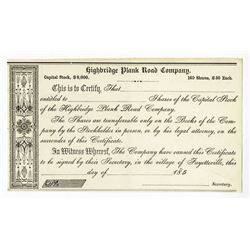 Highbridge Plank Road Company.
Capital Stock, $8,000. 160 Shares, $50 Each.
This is to Certify, That
entitled to Shares of the Capital Stock
of the Highbridge Plank Road Company.
The Shares are transferable only on the Books of the Com-
pany by the Stockholder in person, or by his legal attorney, on the
surrender of this Certificate.
In Witness Whereof, The Company have caused this Certificate
to be signed by their Secretary, in the village of Fayetteville, this
day of 185
Secretary.